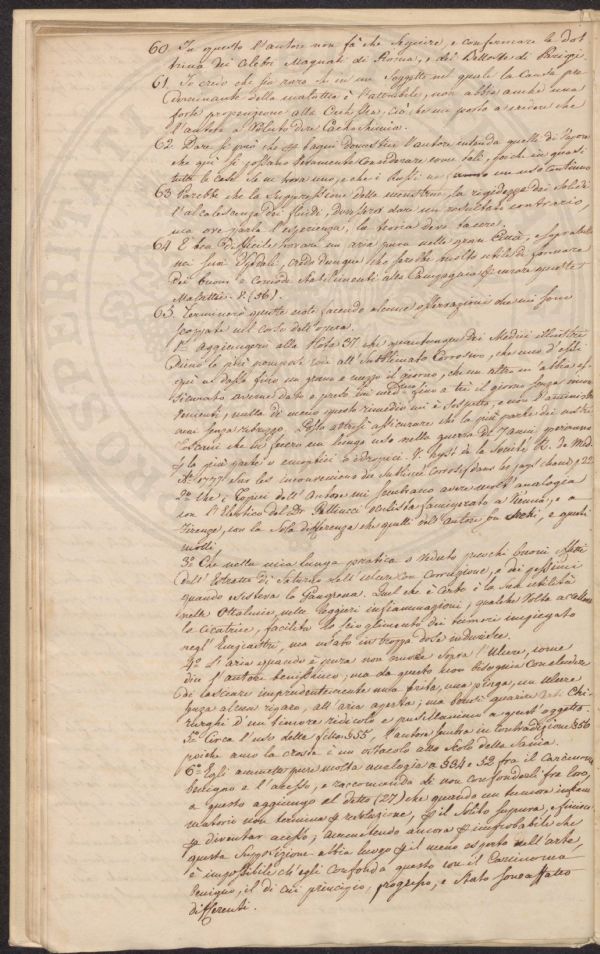 60. In questo l'autore non fà che seguire, e confermare la dot
trina dei celebri Magnati di Roma, e del Bellosta di Parigi.
61. Io credo che sia raro se in un Soggetto nel quale la Causa pre
dominante della malattia è l'attrabile, non abbia anche una
forte propensione alla Cachessia, ciò che mi porta a credere che
l'autore a Voluto dire Cachochimia.
62. Pare si può che i bagni domestici l'autore intenda quelli di Vapore
che qui si possano Veramente Considerare come tali, perche in quasi
tutte le case se ne trova uno, e che i Russi ne un uso continuo
63. Parebbe che la Suppressione della menstrua, la rigidezza dei Solidi
l'alcalescenza dei fluidi, dovessero dare un resultato contrario,
ma ove parla l'esperienza, la teoria deve tacere.
64. È ben difficile trovare un aria pura nelle gran Città, e sopratutto
nei suoi Spedali, credo dunque che sarebbe molto utile di formare
dei buoni e comodi stabilimenti alla Campagna per curare queste
Malattie. V. (36).
65. Terminerò queste note facendo alcune osservazioni che mi sono
scappate nel corso dell'opera.
1º aggiungerò alla Nota 37 che quantunque dei Medici illustri
diano le più pompose lodi all'Sublimato Corrosivo, che uno d'essi
qui ne dassa fino un grano e mezzo il giorno, che un altro m'abbia as
sicurato averne dato e preso lui med.mo fino a tre il giorno senza incon
venienti, nulla di meno questo rimedio mi è sospetto, e non l'amministro
mai senza ribrezzo. Posso altresi assicurare che la più parte dei nostri
Toscani che ne fecero un lungo uso nella guerra di 7 anni perirono
per la più parte o emoptici o idropici. V. Hyst. de la Societé R. de Med.
Aº. 1777 Sur les inconveniens du Sublimé Corrosif dans les pays chauds, p. 22
2º Che i Topici dell'Autore mi sembrano avere molt'analogia
con l'Elastico del Dr. Pellucci Oculista famigerato a Vienna, e a
Firenze, con la sola differenza che quelli dell'autore son Secchi, e questi
molli.
3º Che nella mia lunga pratica o Veduto pochi buoni effetti
dall'Estratto di Saturno nell'ulcere con Corruzione, e dei pessimi
quando esisteva la Gangrena. Quel che è Certo è la sua utilità
nelle Ottalmie, nelle leggieri infiammazioni, qualche Volta accellera
la cicatrice, facilita lo scioglimento dei tumori impiegato
negl'Empiastri, ma usato in troppa dose indurisce.
4º L'aria quando è pura non nuoce sopra l'Ulcere, come
dice l'autore benissimo; ma da questo non bisogna Concludere
di lasciare imprudentemente una ferita, una piaga, un Ulcere
senza alcun riparo, all'aria aperta; ma bensi guarire i Chi
rurghi d'un timore ridicolo e pusillanimo a quest'oggetto.
5º Circa l'uso delle fille § 355, l'autore entra in contradizione § 356
poiche anco la crosta è un ostacolo allo scolo della Sania.
6º Egli ammette pure molta analogia a § 34 e 53 fra il carcinoma
benigno e l'acesso, e raccomanda di non confonderli fra loro,
a questo aggiungo el detto (27) che quando un tumore infiam
matorio non termina per resoluzione, per il solito supura, e finisce
per diventar acesso; ammettendo ancora per improbabile che
questa supposizione abbia luogo per il meno esperto nell'arte,
è impossibile ch'egli confonda questo con il Carcinoma
benigno, il di cui principio, progresso, e stato sono affatto
differenti.